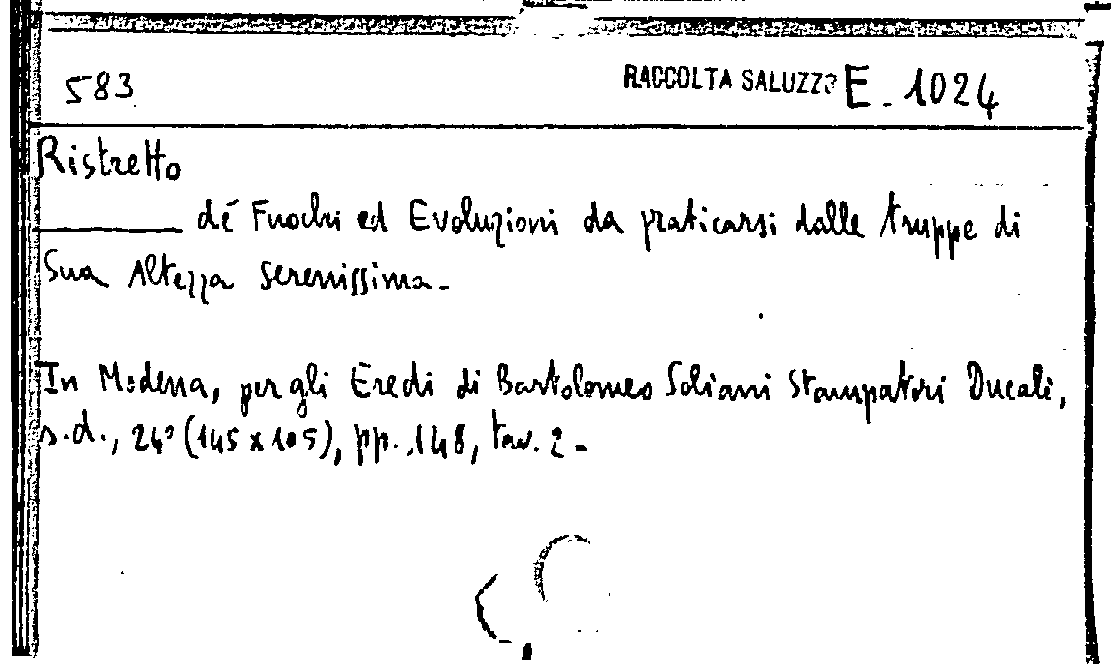 583 RACCOLTA SALUZZO E. 1024
Ristretto
dé Fuochi ed Evoluzioni da praticarsi dalle truppe di
Sua Altezza Serenissima.-
In Modena, per gli Eredi di Bartolomeo Soliani Stampatori Ducali,
s.d., 24° (145 x 105), pp. 148, tav. 2 -